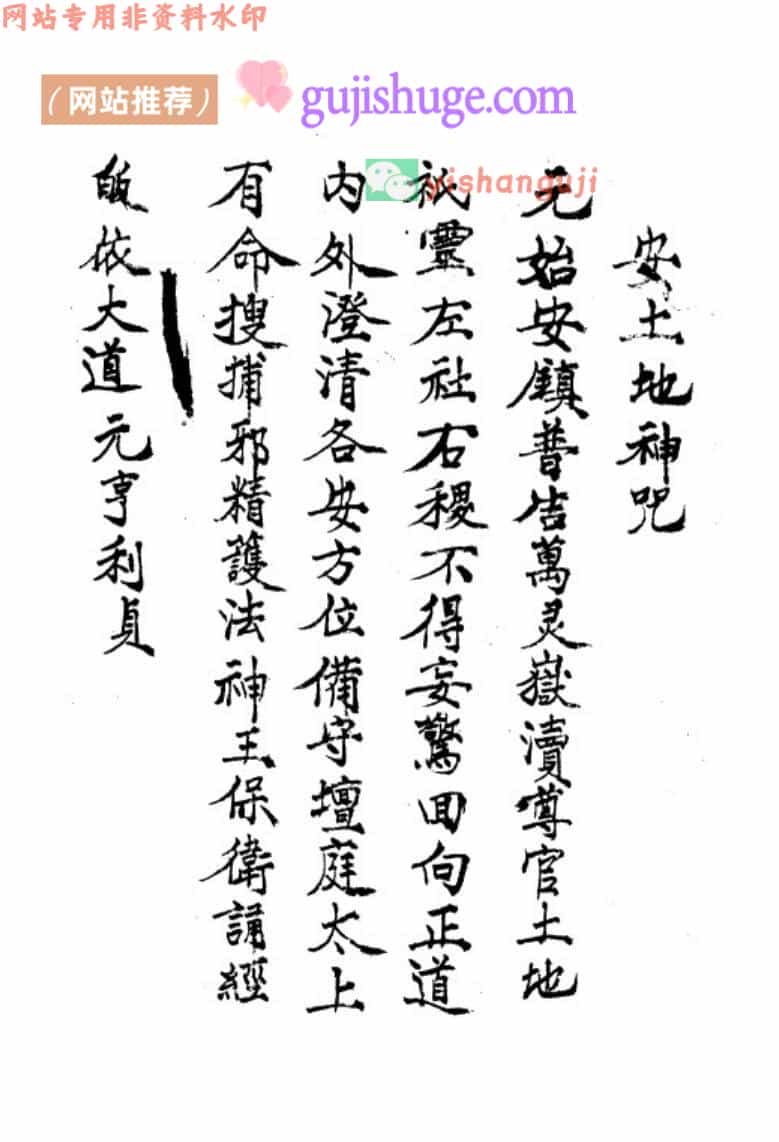 网站专用非资料水印
（网站推荐） gujishuge.com
yishanguji
安土地神咒
元始安鎮普告萬灵嶽瀆尊官土地
祇靈左社右稷不得妄驚回向正道
内外澄清各安方位備守壇庭太上
有命搜捕邪精護法神王保衛誦經
皈依大道元亨利貞